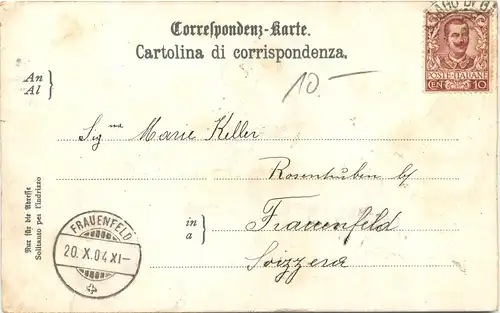 Correspondenz-Karte.
Cartolina di corrispondenza.
10-
POSTE·ITALIANE
CEN 10
An
Al
Signa Marie Keller
Rosenhuben b/
in
a
Frauenfeld
Svizzera
Nur für die Adresse
Soltanto per l'indirizzo
FRAUENFELD
20.X.04.XI-